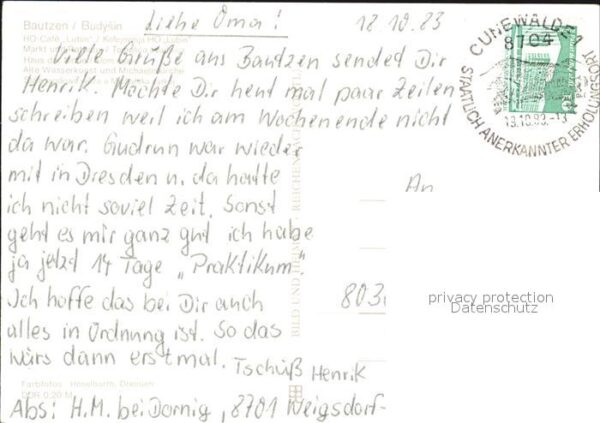 Bautzen / Budyšin
HO-Café „Lubin" /
Alte Wasserkunst und Michaeliskirche
Liebe Oma! 18.10.83
Viele Grüße aus Bautzen sended Dir
Henrik. Möchte Dir heut mal paar Zeilen
schreiben weil ich am Wochenende nicht
da war. Gudrun war wieder
mit in Dresden u. da hatte
ich nicht soviel Zeit. Sonst
geht es mir ganz gut ich habe
ja jetzt 14 Tage „Praktikum"
Ich hoffe das bei Dir auch
alles in Ordnung ist. So das
wärs dann erstmal.
Tschüß Henrik
Farbfotos: Hoselbarth, Dresden
DDR 0,20 M
Abs: H.M. bei Dornig, 8701 Weigsdorf-
BILD UND HEIMAT REICHENBACH
CUNEWALDE
8704
18.10.83.-13
STAATLICH ANERKANNTER ERHOLUNGSORT
An
803
privacy protection
Datenschutz